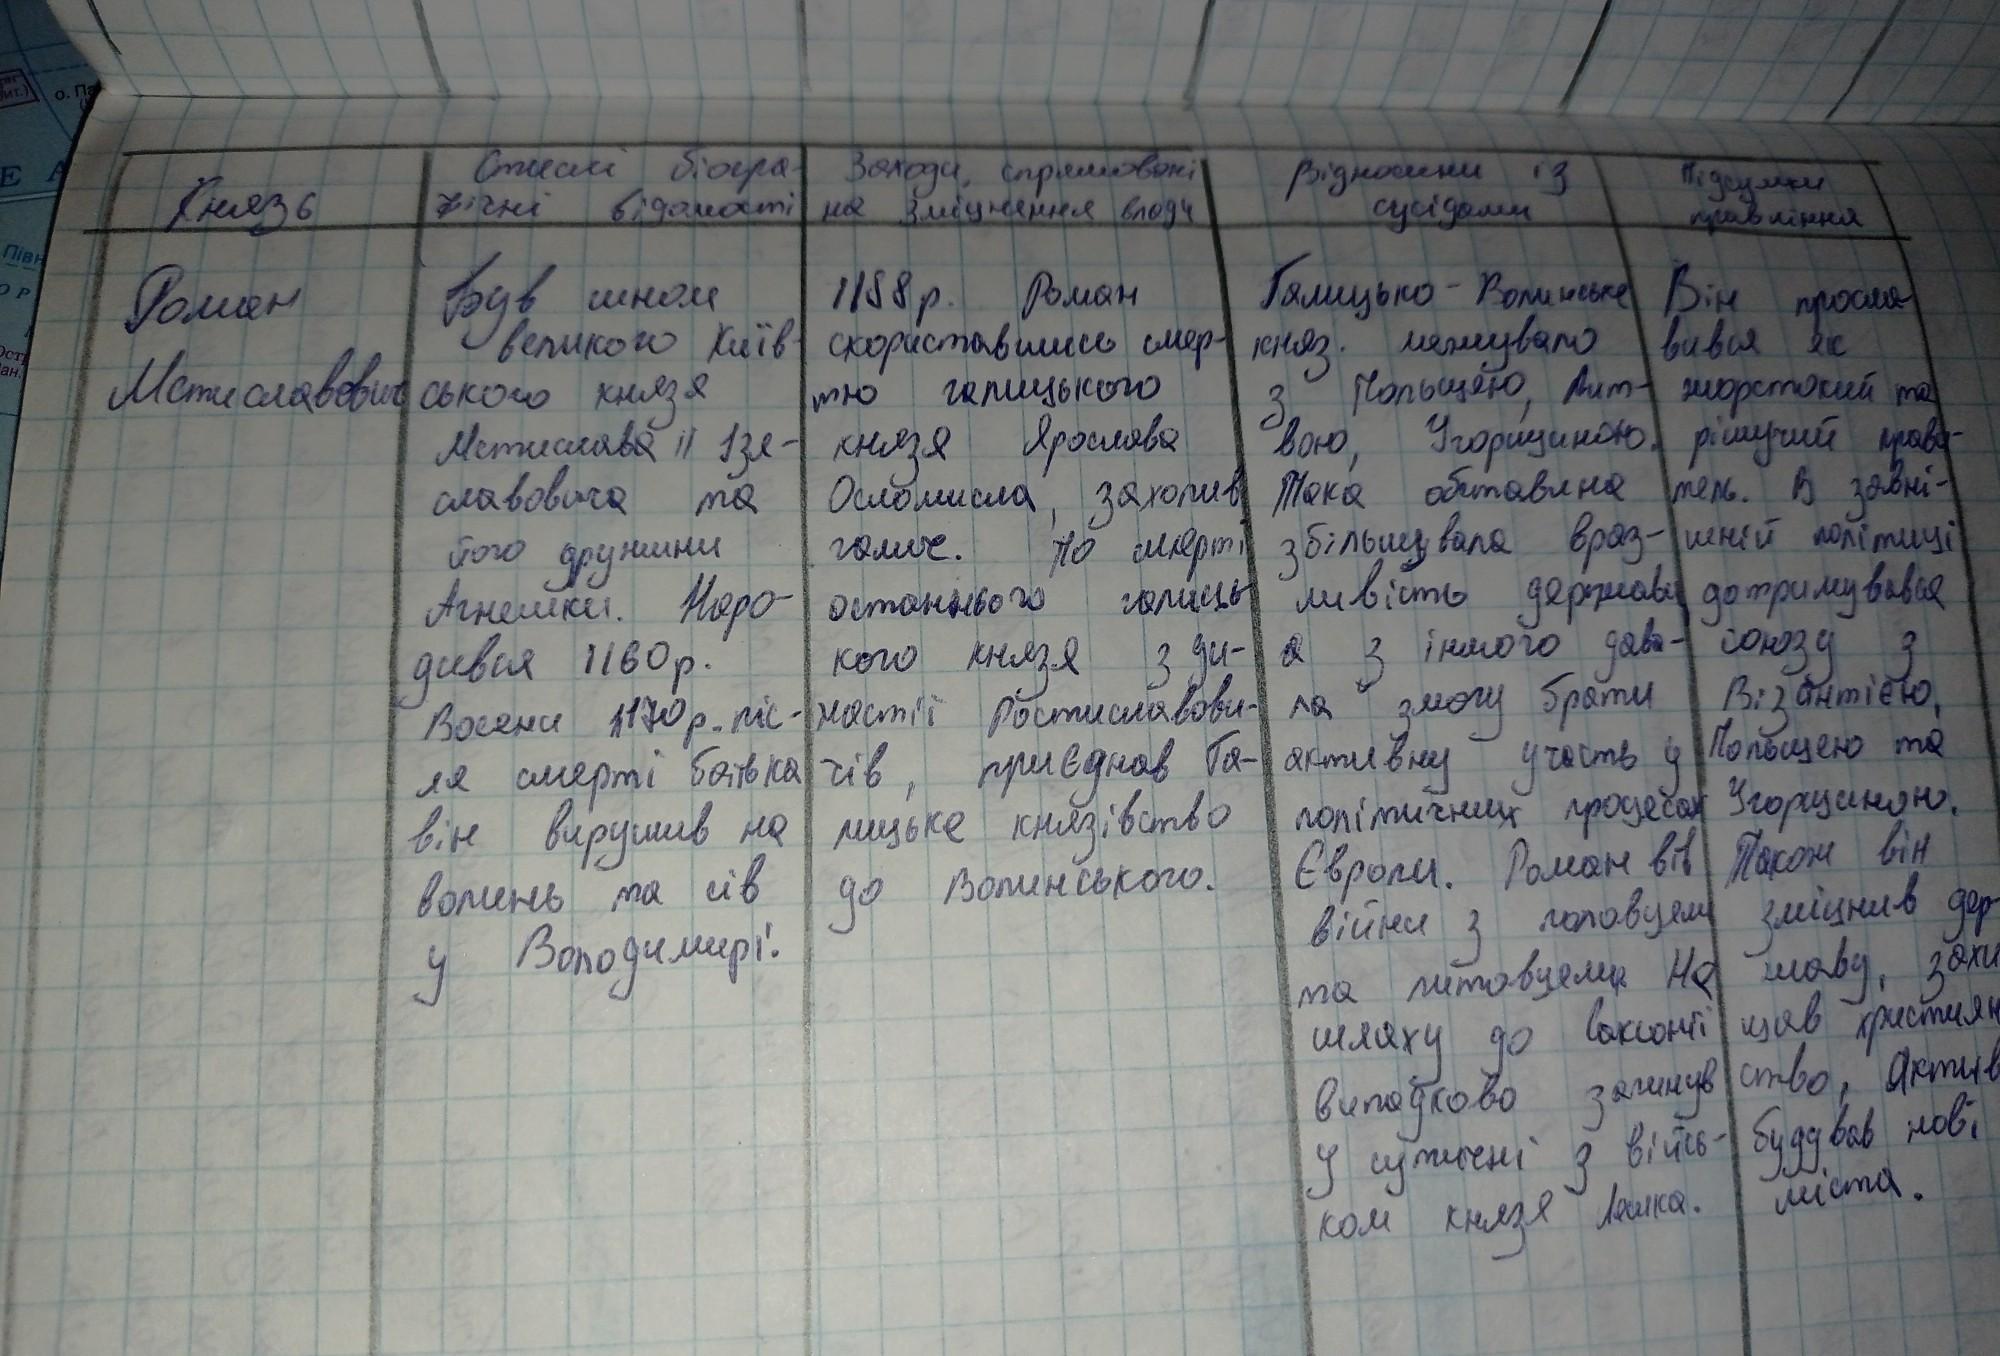 Князь
Стислі біогра-
фічні відомості
Заходи, спрямовані
на зміцнення влади
Відносини із
сусідами
Підсумки
правління
Роман
Мстиславович
Був сином
великого Київ-
ського князя
Мстислава II Ізя-
славовича та
його дружини
Агнешки. Наро-
дився 1160р.
Восени 1170р. піс-
ля смерті батька
він вирушив на
волинь та сів
у Володимирі.
1188р. Роман
скориставшись смер-
тю галицького
князя Ярослава
Осломисла, захопив
галич. По смерті
останнього галиць-
кого князя з ди-
настії Ростиславови-
чів, приєднав Га-
лицьке князівство
до Волинського.
Галицько-Волинське
княз. межувало
з Польщею, Лит-
вою, Угорщиною.
Така обставина
збільшувала враз-
ливість держави
а з іншого дава-
ла змогу брати
активну участь у
політичних процесах
Європи. Роман вів
війни з половцями
та литовцями. На
шляху до
випадково загинув
у сутичні з війсь-
ком князя Лешка.
Він просла-
вився як
жорстокий та
рішучий прави-
тель. В зовні-
шній політиці
дотримувався
союзу з
Візантією,
Польщею та
Угорщиною.
Також він
зміцнив дер-
жаву, захи
щав християн
ство, Актив
будував нові
міста.
о. Па
Півн
Е А